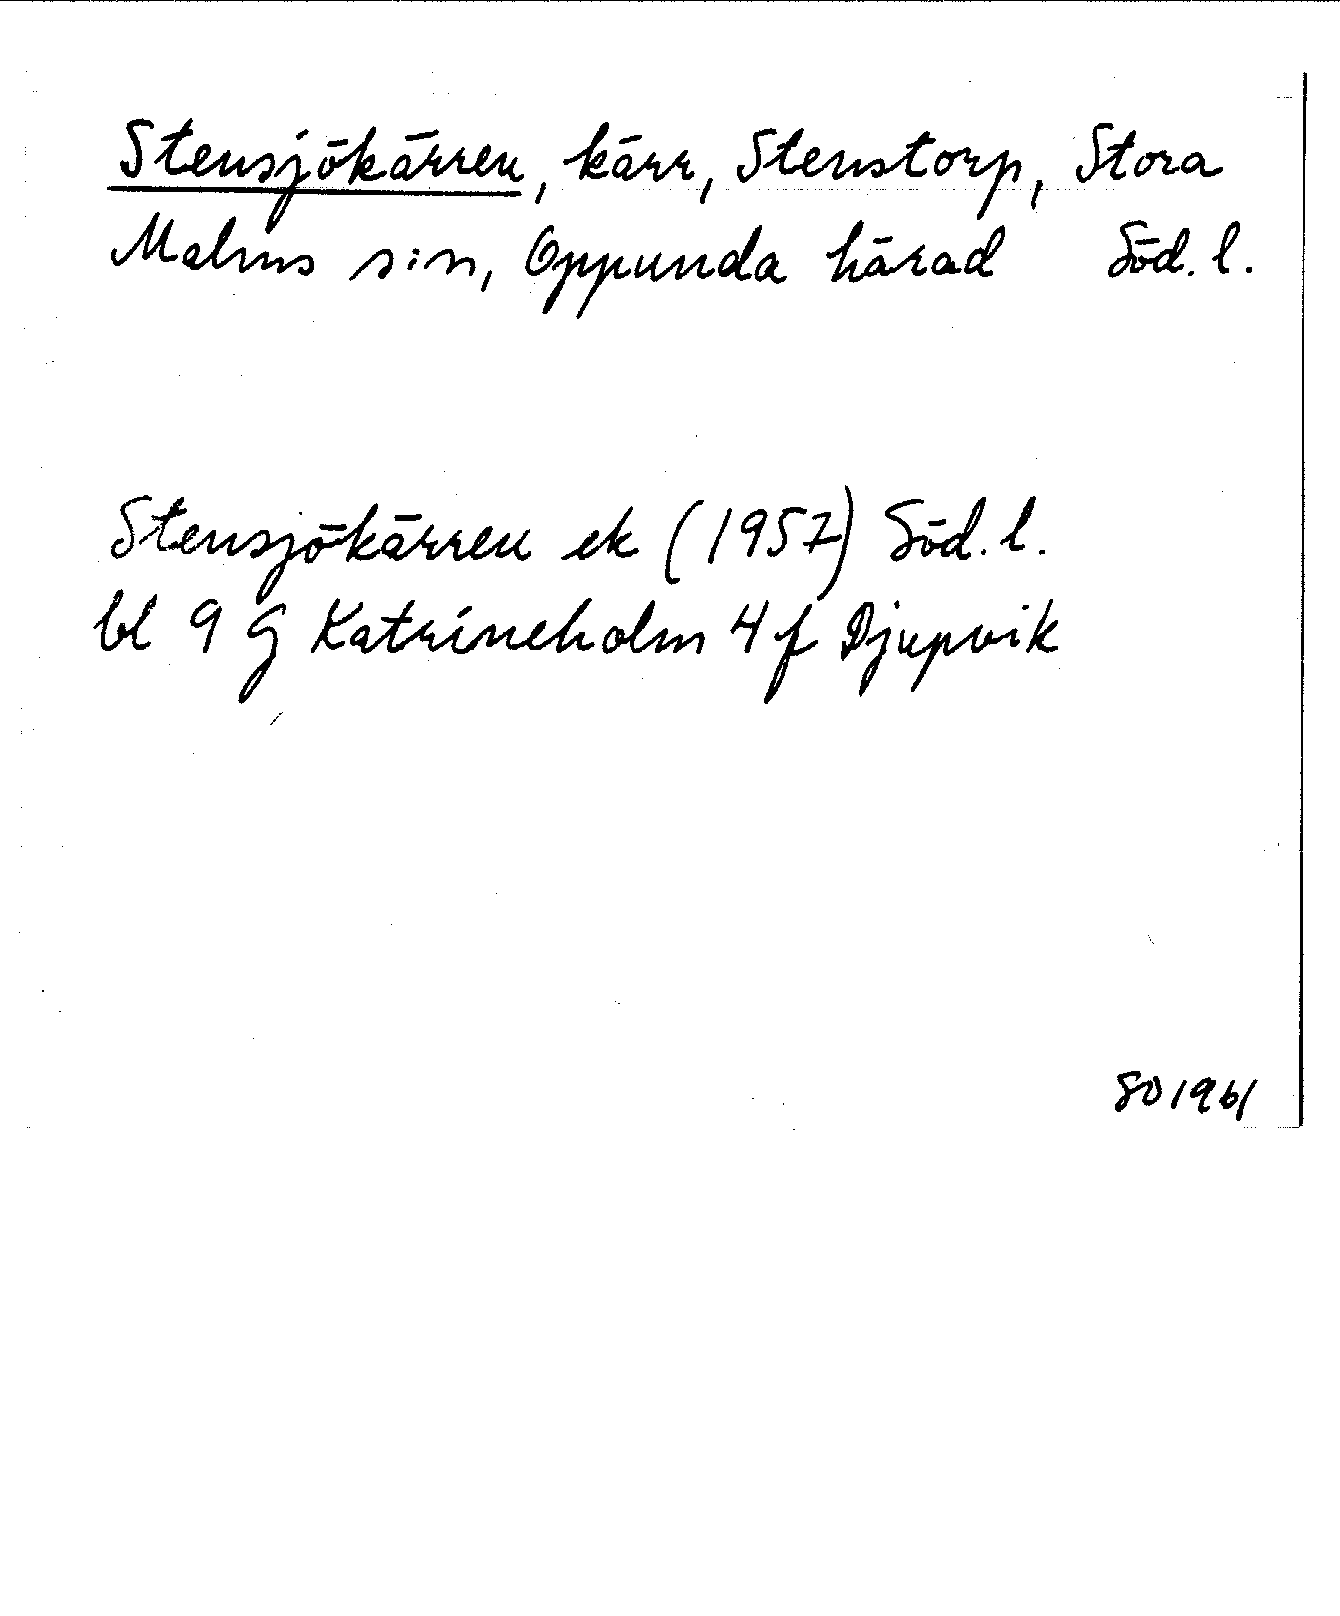 Stensjökärren, kärr, Stenstorp, Stora
Malms s:n, Oppunda härad Söd. l.
Stensjökärren ek (1957) Söd. l.
bl 9 G Katrineholm 4 f Djupvik
SO 1961